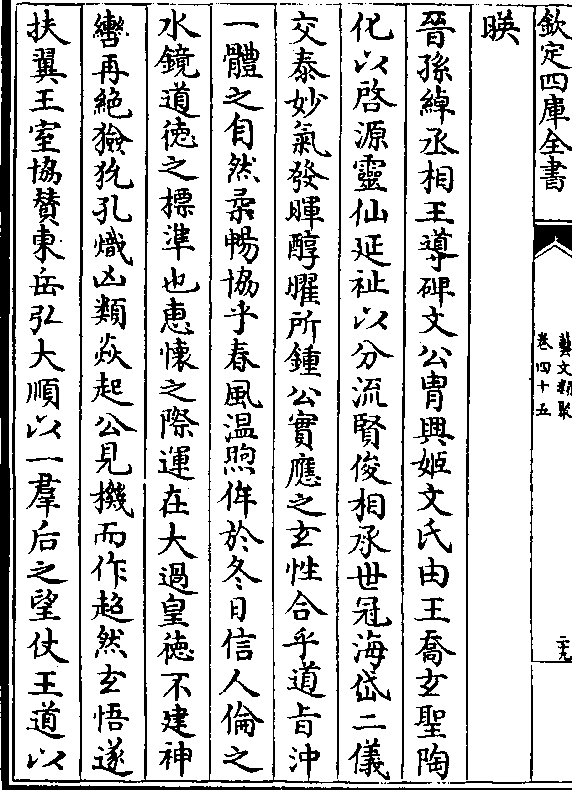 欽定四庫全書
藝文類聚
卷四十五
二十九
暎
晉孫綽丞相王導碑文公胄興姬文氏由王喬玄聖陶
化以啓源靈仙延祉以分流賢俊相承世冠海岱二儀
交泰妙氣發暉醇曜所鍾公實應之玄性合乎道旨沖
一體之自然柔暢協乎春風温煦侔於冬日信人倫之
水鏡道徳之標準也惠懷之際運在大過皇徳不建神
轡再絶獫狁孔熾凶類焱起公見機而作超然玄悟遂
扶翼王室協賛東岳弘大順以一羣后之望仗王道以